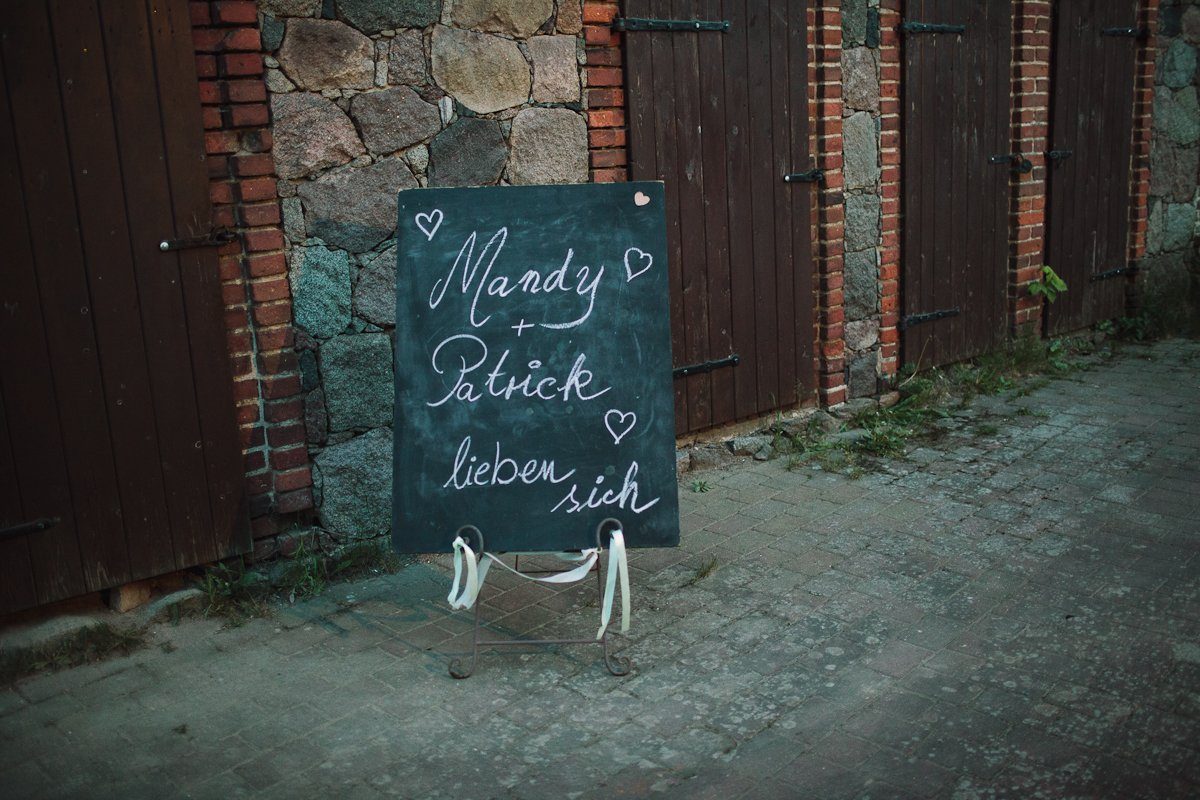 Mandy
+
Patrick
lieben
sich